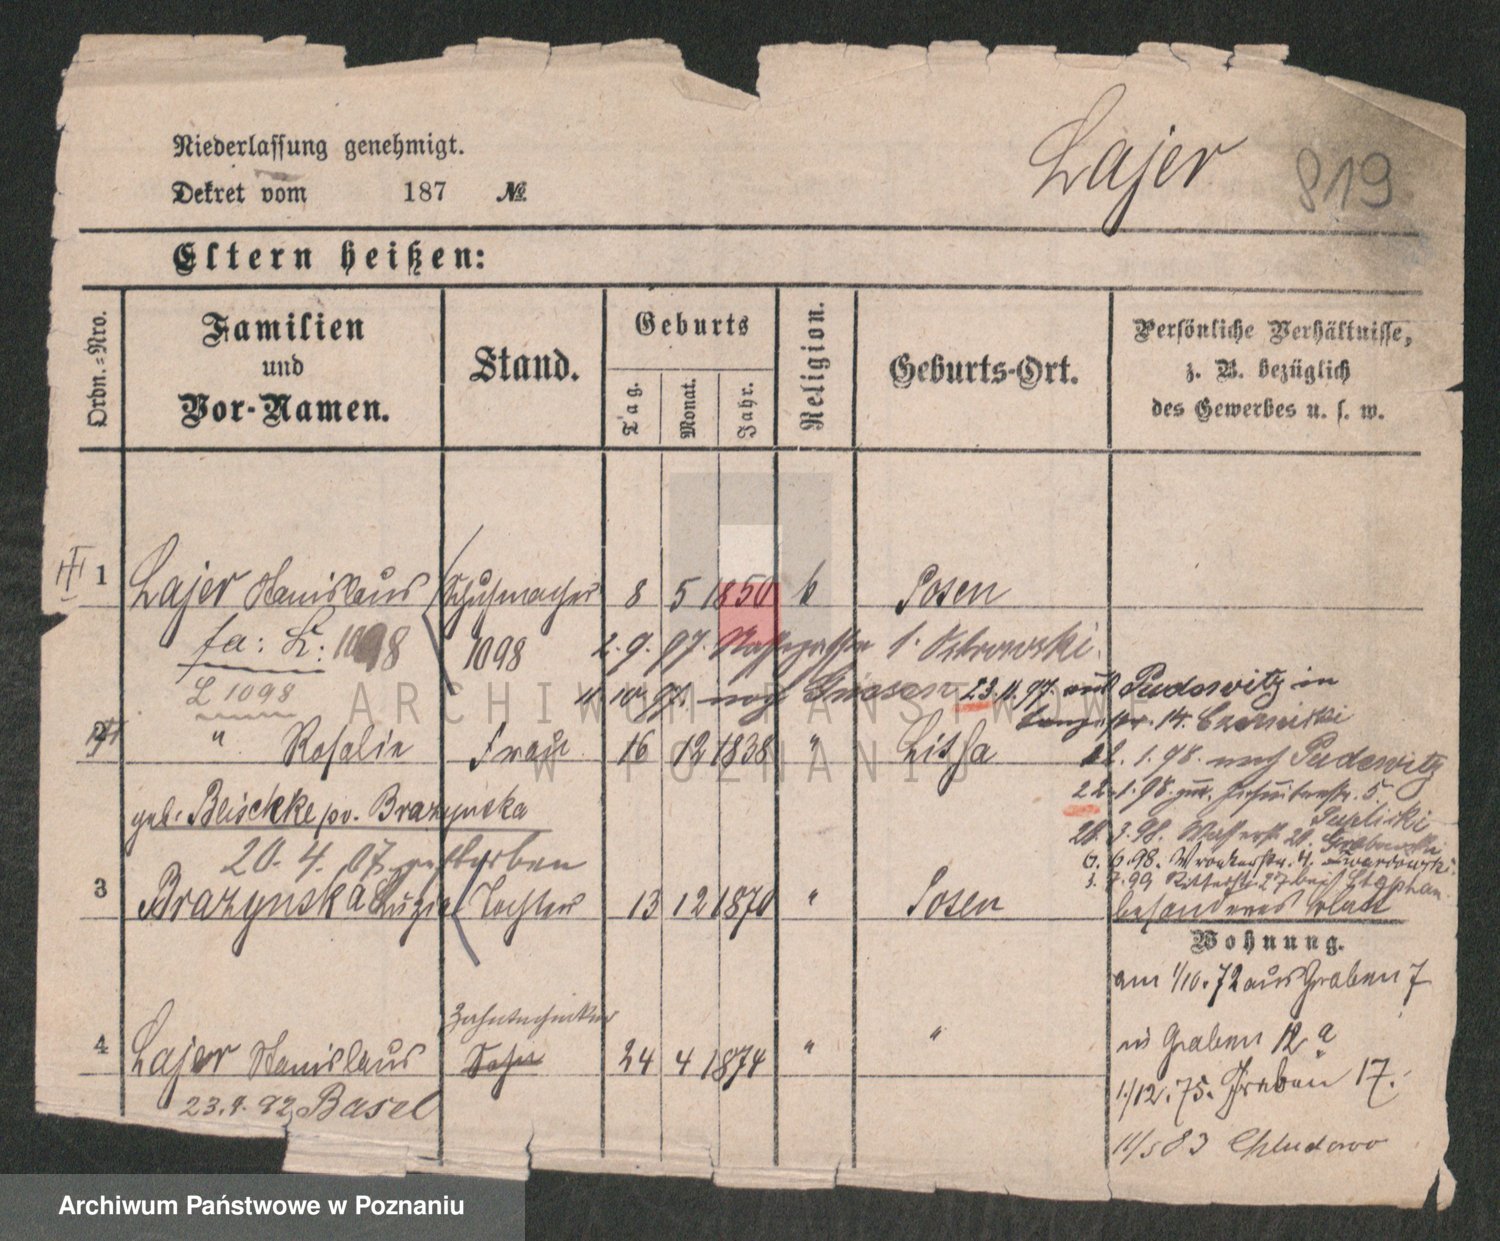 Niederlassung genehmigt.
Dekret vom 187 №
Lajer 819
Eltern heißen:
Ordn.-Nro.
Familien
und
Vor-Namen.
Stand.
Geburts
Tag.
Monat.
Jahr.
Religion.
Geburts-Ort.
Persönliche Verhältnisse,
z. B. bezüglich
des Gewerbes u. s. w.
1 Lajer Stanislaus Schuhmacher 8 5 1850 k Posen
fa: L: 1098 1098 2.9.97.
L 1098 11.10.97. nach Gnesen 23.11.97. aus Pudewitz in
14. Czarnecki
2 " Rosalie Frau 16 12 1838 " Lissa
1.98. nach Pudewitz
geb. Blischke pv. Brazynska
22.1.98. 5
20.4.07 gestorben
28.3.98. Wasserstr. 20.
6.6.98. Wronkerstr. 4.
3.7.99 Ritterstr. 27 bei Stephan
3 Brazynska Luzie Tochter 13 12 1870 " Posen
besonderes Blatt
Wohnung.
am 1/10.72 aus Graben 7
in Graben 12 a
4 Lajer Stanislaus Zahntechniker Sohn 24 4 1874 " "
1/12.75. Graben 17.
23.9.92 Basel
11/5 83 Chludowo
ARCHIWUM PAŃSTWOWE
W POZNANIU
Archiwum Państwowe w Poznaniu